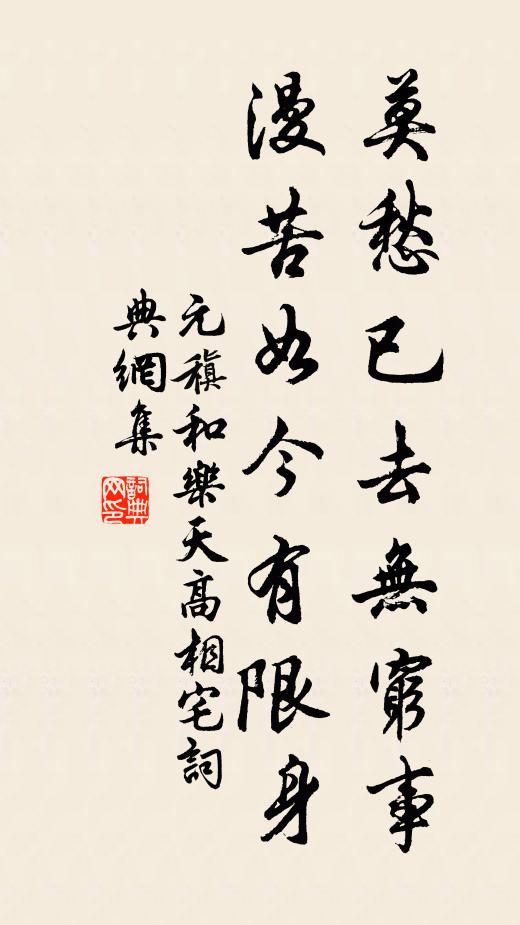 莫愁已去無窮事
漫苦如今有限身
元稹和樂天高相宅詞
典網集
詞典
网印